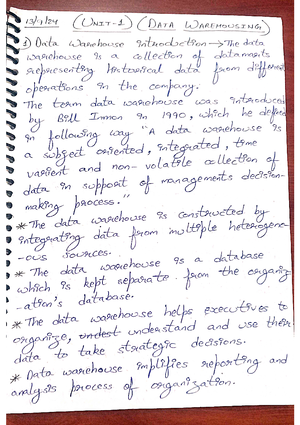 13/9/24 (UNIT-1) (DATA WAREHOUSING)
1) Data warehouse introduction → The data
warehouse is a collection of datamarts
representing historical data from different
operations in the company.
The term data warehouse was introduced
by Bill Inmon in 1990, which he defined
in following way "A data warehouse is
a subject oriented, integrated, time
varient and non-volatile collection of
data in support of managements decision-
making process."
* The data warehouse is constructed by
integrating data from multiple heterogene
-ous sources.
* The data warehouse is a database
which is kept separate from the organiz
-ation's database.
* The data warehouse helps executives to
organize, undest understand and use their
data to take strategic decisions.
* Data warehouse implifies reporting and
analysis process of organization.